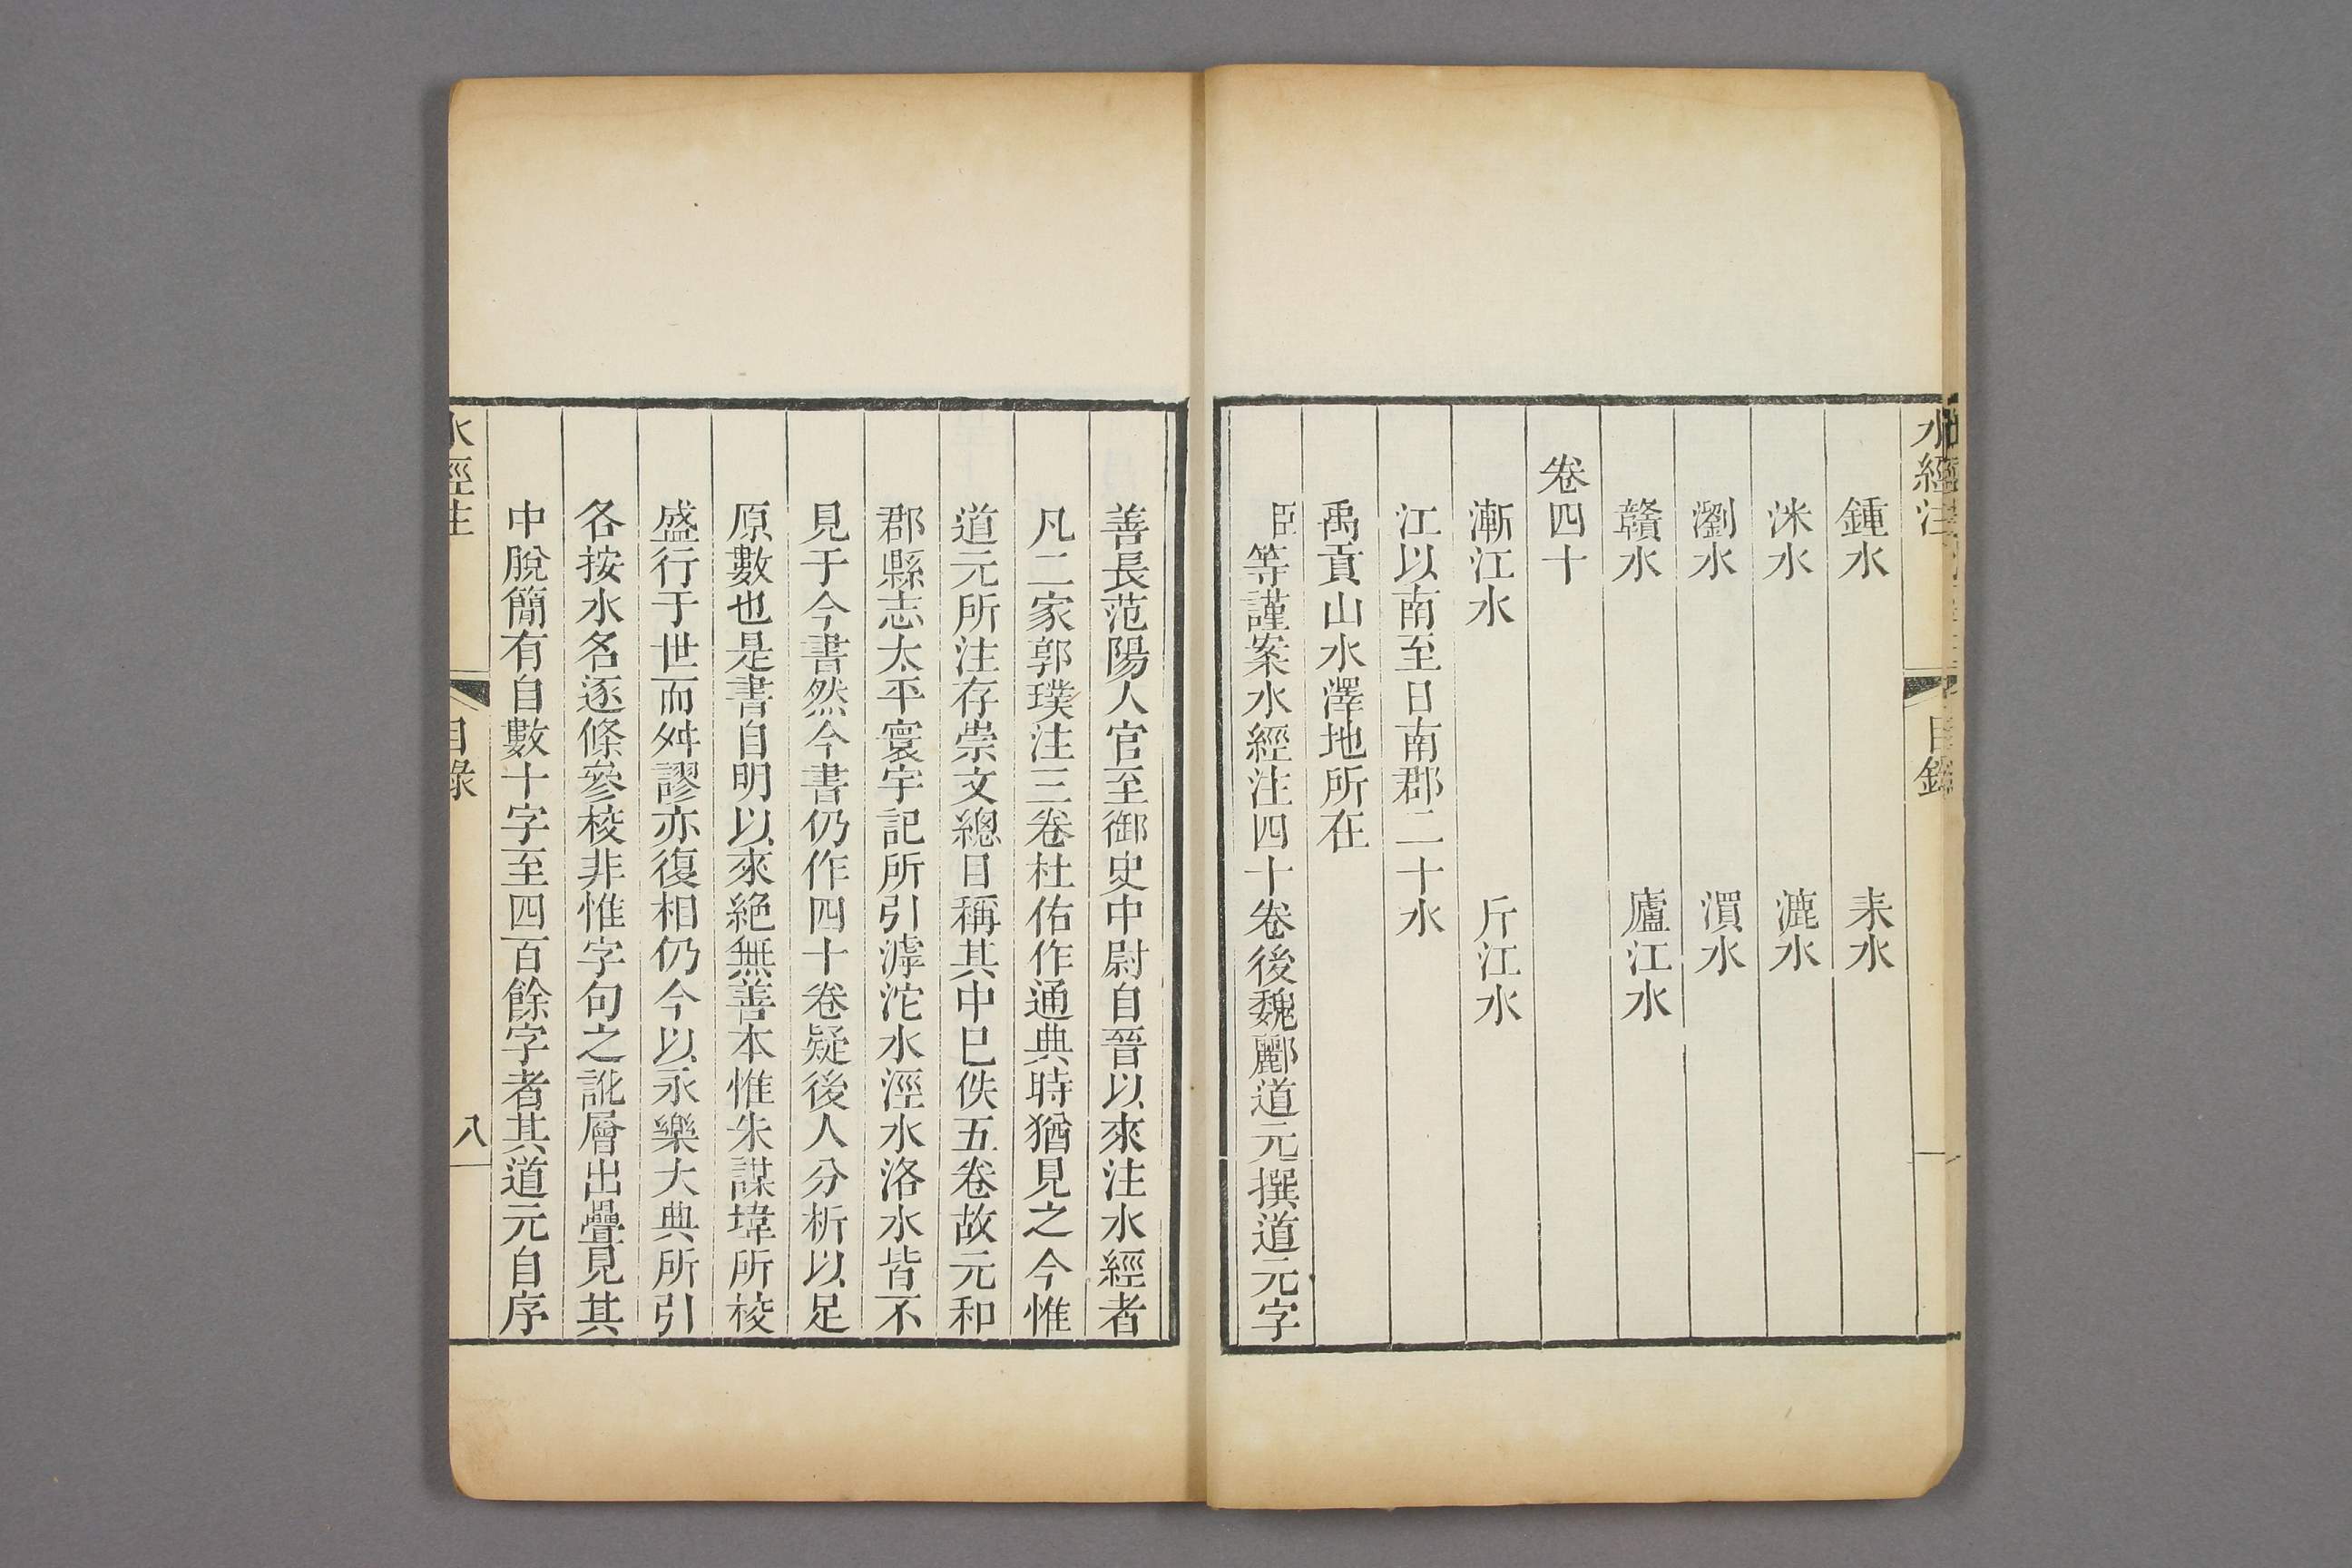 水經注 目錄
鍾水 耒水
洣水 漉水
瀏水 㵋水
贛水 廬江水
卷四十
漸江水 斤江水
江以南至日南郡二十水
禹貢山水澤地所在
臣等謹案水經注四十卷後魏酈道元撰道元字
善長范陽人官至御史中尉自晉以來注水經者
凡二家郭璞注三卷杜佑作通典時猶見之今惟
道元所注存崇文總目稱其中已佚五卷故元和
郡縣志太平寰宇記所引滹沱水涇水洛水皆不
見于今書然今書仍作四十卷疑後人分析以足
原數也是書自明以來絕無善本惟朱謀㙔所校
盛行于世而舛謬亦復相仍今以永樂大典所引
各按水名逐條參校非惟字句之訛層出疊見其
中脫簡有自數十字至四百餘字者其道元自序
水經注 目錄 八